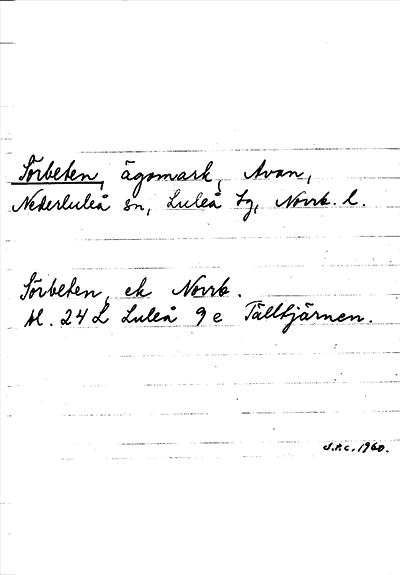 Sörbeten, ägomark, Avan,
Nederluleå sn, Luleå tg, Norrb. l.
Sörbeten, ek Norrb.
bl. 24 L Luleå 9 e Tälltjärnen.
J.P.C. 1960.